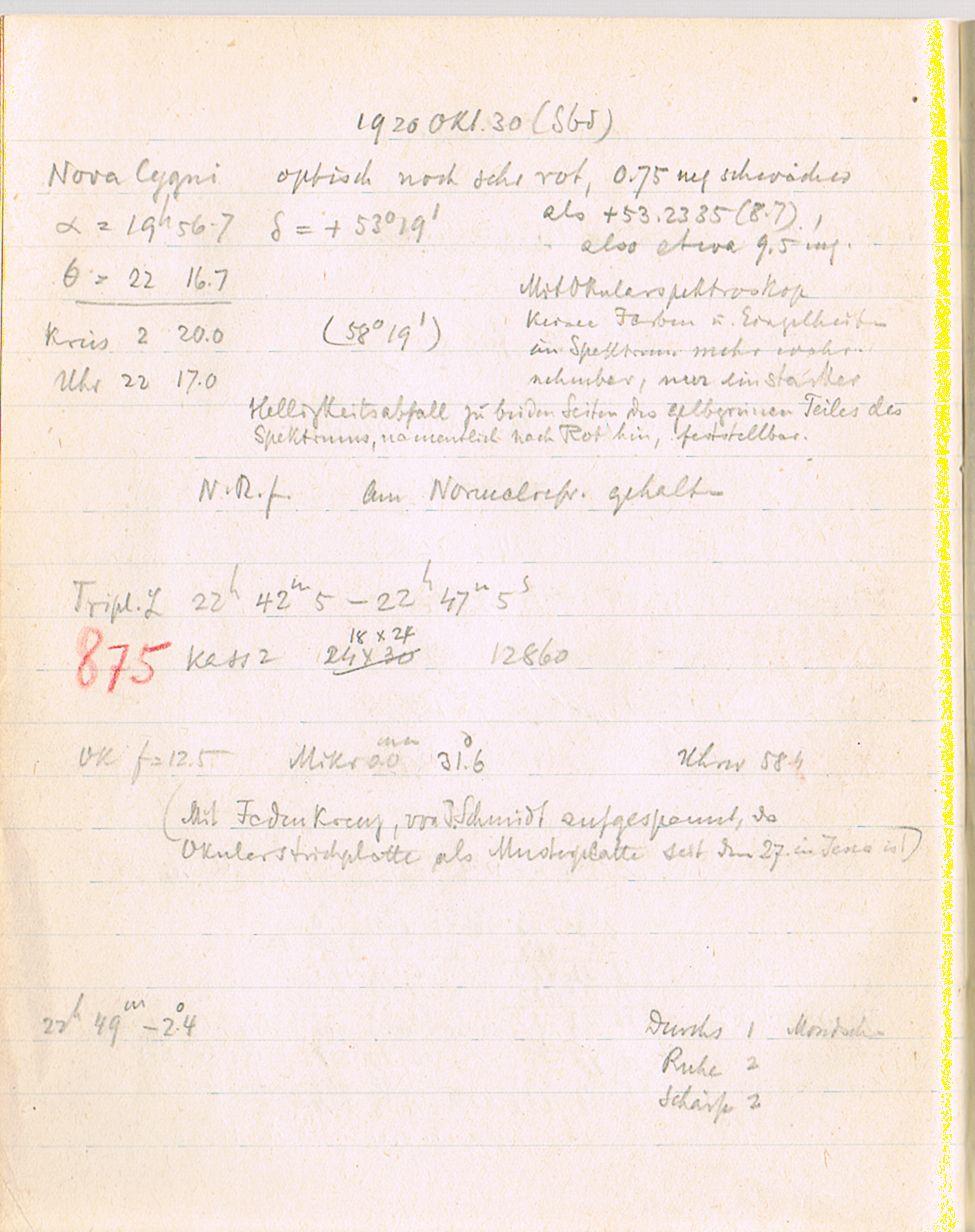 1920 Okt. 30 (Sbd)
Nova Cygni optisch noch sehr rot, 0.75 mg schwächer
α = 19h 56.7 δ = + 53° 19' als +53.2335 (8.7),
also etwa 9.5 mg.
θ = 22 16.7
Mit Okularspektroskop
Kreis 2 20.0 (58° 19') keine Farben u. Einzelheiten
im Spektrum mehr wahr-
Uhr 22 17.0 nehmbar, nur ein starker
Helligkeitsabfall zu beiden Seiten des gelbgrünen Teiles des
Spektrums, namentlich nach Rot hin, feststellbar.
N.R.f. am Normalrefr. gehalten
Tripl. L 22h 42m 5 – 22h 47m 5s
18 x 24
875 Kass 2 24 x 30 12860
mm
OK f = 12.5 Mikr 31.6 Uhrw 58
(Mit Fadenkreuz, von B. Schmidt aufgespannt, da
Okularstrichplatte als Musterplatte seit dem 27. in Jena ist)
22h 49m –2°.4 Durchs 1 Mondsch
Ruhe 2
Schärfe 2